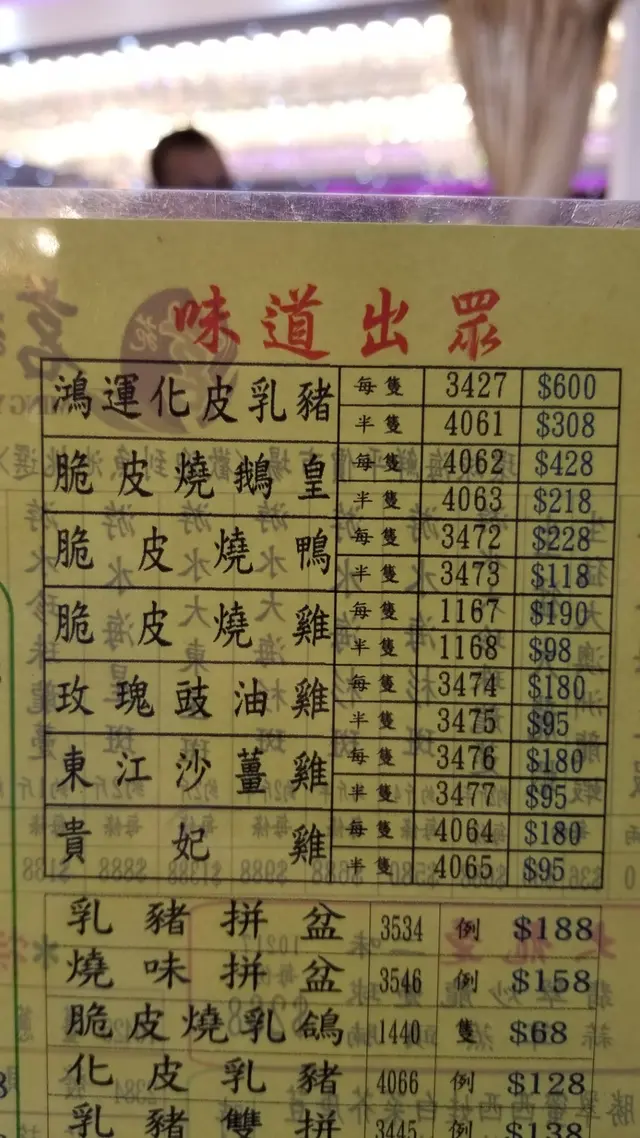 味道出眾
鴻運化皮乳豬 每隻 3427 $600
半隻 4061 $308
脆皮燒鵝皇 每隻 4062 $428
半隻 4063 $218
脆皮燒鴨 每隻 3472 $228
半隻 3473 $118
脆皮燒雞 每隻 1167 $190
半隻 1168 $98
玫瑰豉油雞 每隻 3474 $180
半隻 3475 $95
東江沙薑雞 每隻 3476 $180
半隻 3477 $95
貴妃雞 每隻 4064 $180
半隻 4065 $95
乳豬拼盆 3534 例 $188
燒味拼盆 3546 例 $158
脆皮燒乳鴿 1440 隻 $68
化皮乳豬 4066 例 $128
乳豬雙拼 3445 例 $138